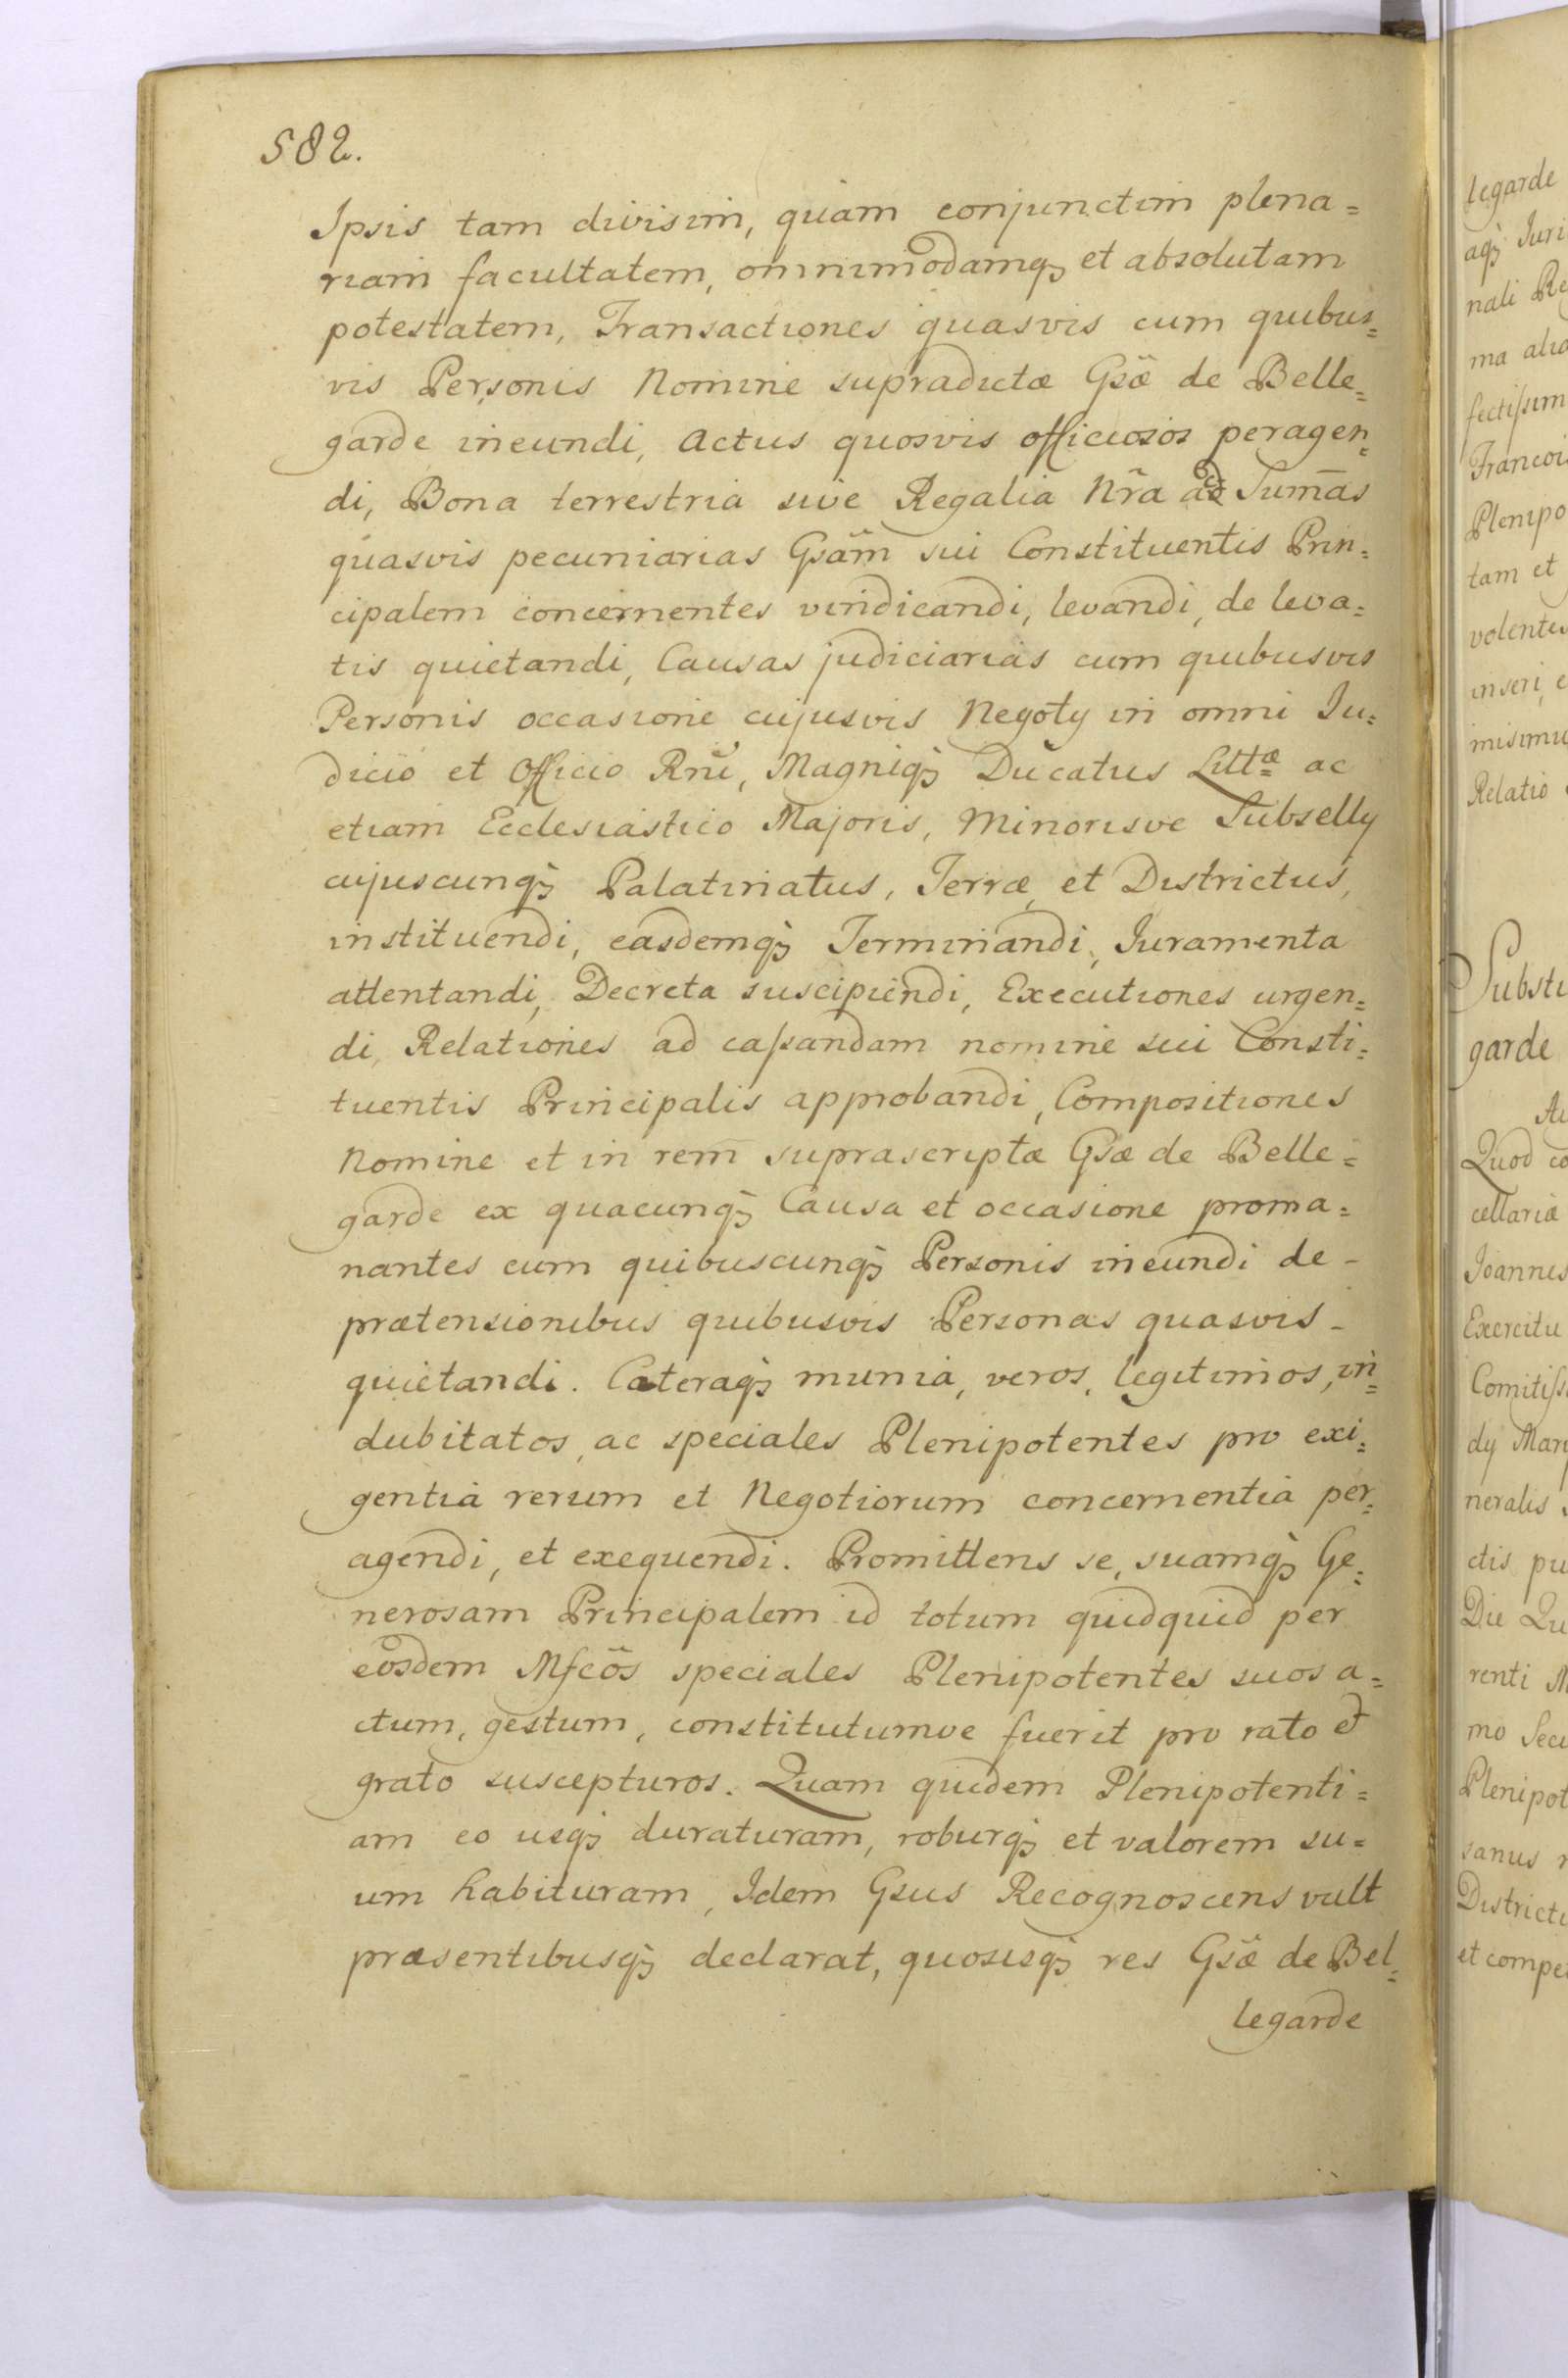 582.
Ipsis tam divisim, quàm conjunctim plena=
riam facultatem, omnimodamq; et absolutam
potestatem, Transactiones quasvis cum quibus=
vis Personis Nomine supradictæ Gsæ de Belle=
garde ineundi, Actus quosvis officiosos peragen=
di, Bona terrestria sive Regalia Nr̃a ac Sum̃as
quasvis pecuniarias Gsãm sui Constituentis Prin=
cipalem concernentes vindicandi, levandi, de leva=
tis quietandi, Causas judiciarias cum quibusvis
Personis occasione cujusvis Negoty in omni Ju=
dicio et Officio Rñi, Magniq; Ducatus Littæ ac
etiam Ecclesiastico Majoris, Minorisve Subselly
cujuscunq; Palatinatus, Terræ, et Districtus,
instituendi, easdemq; Terminandi, Juramenta
attentandi, Decreta suscipiendi, Executiones urgen=
di, Relationes ad cassandam nomine sui Consti=
tuentis Principalis approbandi, Compositiones
Nomine et in rem suprascriptæ Gsæ de Belle=
garde ex quacunq; Causa et occasione proma=
nantes cum quibuscunq; Personis ineundi de-
prætensionibus quibusvis Personas quasvis-
quietandi. Cæteraq; munia, veros, legitimos, in=
dubitatos, ac speciales Plenipotentes pro exi=
gentia rerum et Negotiorum concernentia per=
agendi, et exequendi. Promittens se, suamq; Ge=
nerosam Principalem id totum quidquid per
eosdem Mfcõs speciales Plenipotentes suos a=
ctum, gestum, constitutumve fuerit pro rato et
grato suscepturos. Quam quidem Plenipotenti=
am eo usq; duraturam, roburq; et valorem su=
um habituram, Idem Gsus Recognoscens vult
præsentibusq; declarat, quousq; res Gsæ de Bel=
legarde
legarde
aq; Juri
nali Re
ma alia
fectissim
Francois
Plenipo
tam et
volentes
inseri, e
misimus
Relatio
Substi
garde
Quod co
cellariæ
Joannes
Exercitu
Comitiss
dy Mar
neralis
ctis pu
Die Qu
renti M
mo Secu
Plenipot
sanus
Districtu
et compe